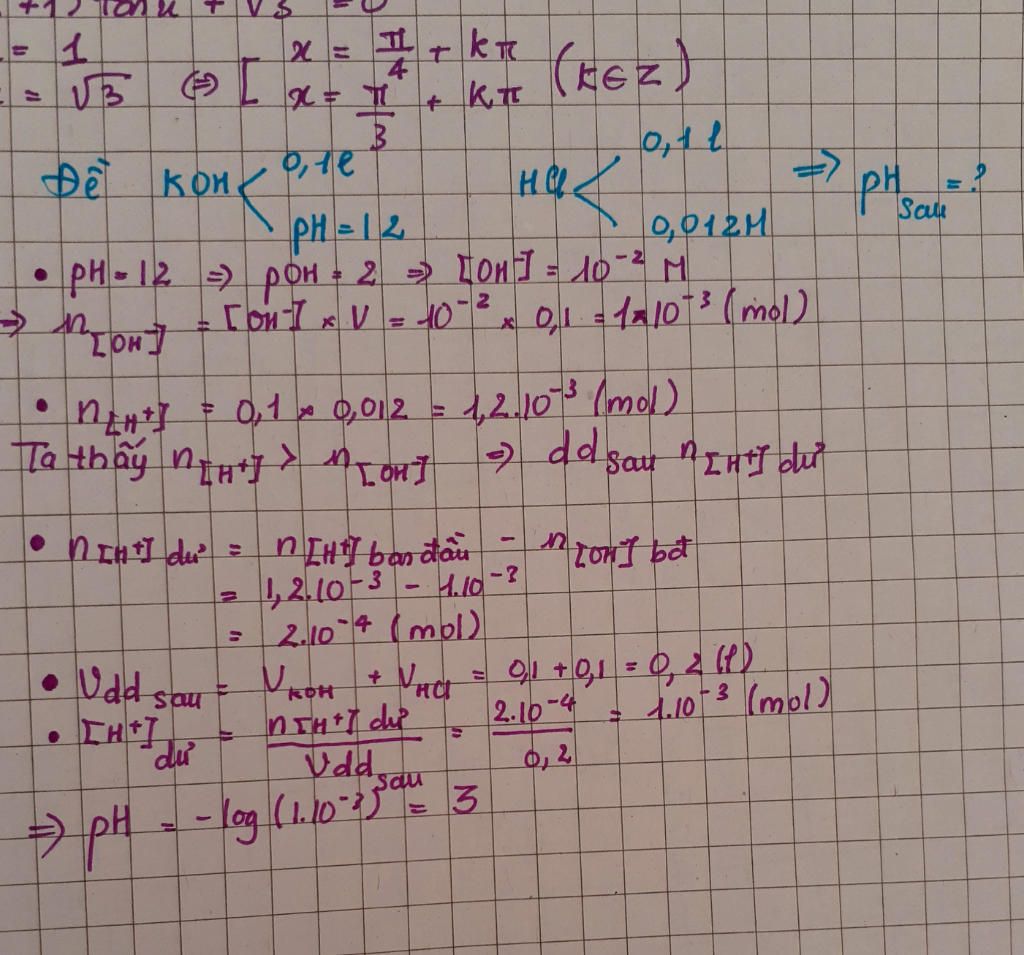 +1) tan x + √3 = 0
= 1
= √3 ⇔ [ x = π/4 + kπ
x = π/3 + kπ (k∈Z)
Đề KOH < 0,1l
pH = 12
HCl < 0,1 l
0,012M
⇒ pH sau = ?
• pH = 12 ⇒ pOH = 2 ⇒ [OH⁻] = 10⁻² M
⇒ n[OH⁻] = [OH⁻] × V = 10⁻² × 0,1 = 1×10⁻³ (mol)
• n[H⁺] = 0,1 × 0,012 = 1,2.10⁻³ (mol)
Ta thấy n[H⁺] > n[OH⁻] ⇒ dd sau n[H⁺] dư
• n[H⁺] dư = n[H⁺] ban đầu - n[OH⁻] bđ
= 1,2.10⁻³ - 1.10⁻³
= 2.10⁻⁴ (mol)
• Vdd sau = VKOH + VHCl = 0,1 + 0,1 = 0,2 (l)
• [H⁺] dư = n[H⁺] dư / Vdd sau = 2.10⁻⁴ / 0,2 = 1.10⁻³ (mol)
⇒ pH = -log (1.10⁻³) = 3